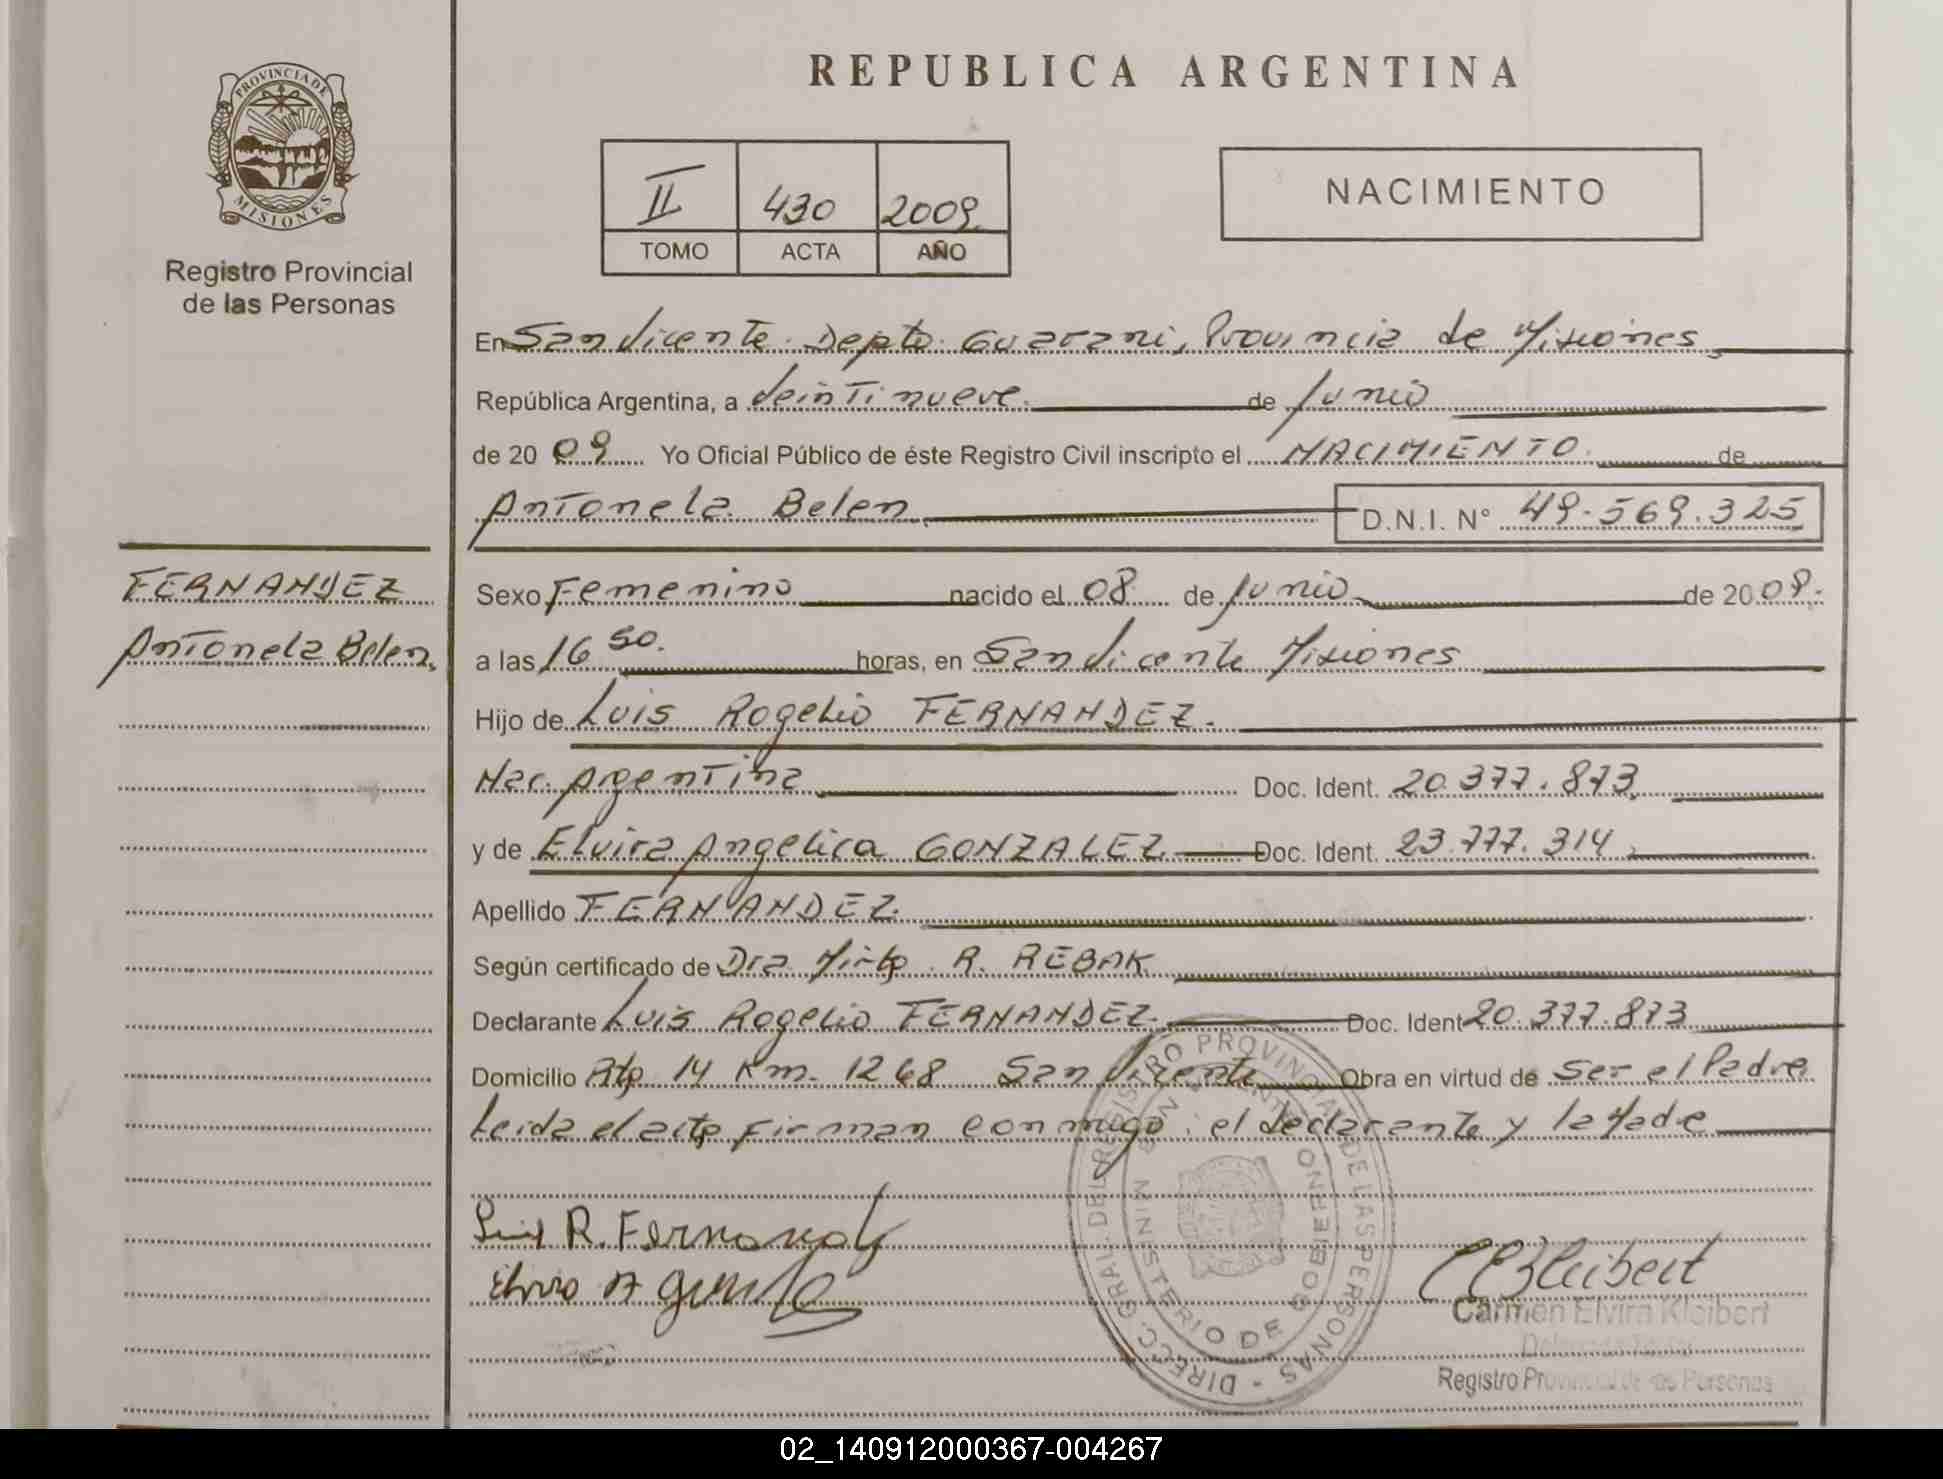 PROVINCIA DE
MISIONES
Registro Provincial
de las Personas
REPUBLICA ARGENTINA
II 430 2009.
TOMO ACTA AÑO
NACIMIENTO
En San Vicente. Depto. Guarani, Provincia de Misiones,
República Argentina, a Veintinueve. de Junio
de 20 09 Yo Oficial Público de éste Registro Civil inscripto el NACIMIENTO. de
Antonela Belen D.N.I. N° 49.569.325
FERNANDEZ
Antonela Belen.
Sexo Femenino nacido el 08 de Junio de 20 09.
a las 16 50. horas, en San Vicente Misiones
Hijo de Luis Rogelio FERNANDEZ.
Nac. Argentina Doc. Ident. 20.377.873.
y de Elvira Angelica GONZALEZ Doc. Ident. 23.777.314
Apellido FERNANDEZ.
Según certificado de Dra. Mirta R. REBAK
Declarante Luis Rogelio FERNANDEZ. Doc. Ident 20.377.873
Domicilio Rta 14 Km. 1268 San Vicente Obra en virtud de Ser el Padre
Leida el acta firman conmigo: el declarante y la Madre
Luis R. Fernandez
CEKleibert
Carmen Elvira Kleibert
Registro Provincial de las Personas
DIRECC. GRAL. DEL REGISTRO PROVINCIAL DE LAS PERSONAS -
MINISTERIO DE GOBIERNO
SAN VICENTE
02_140912000367-004267